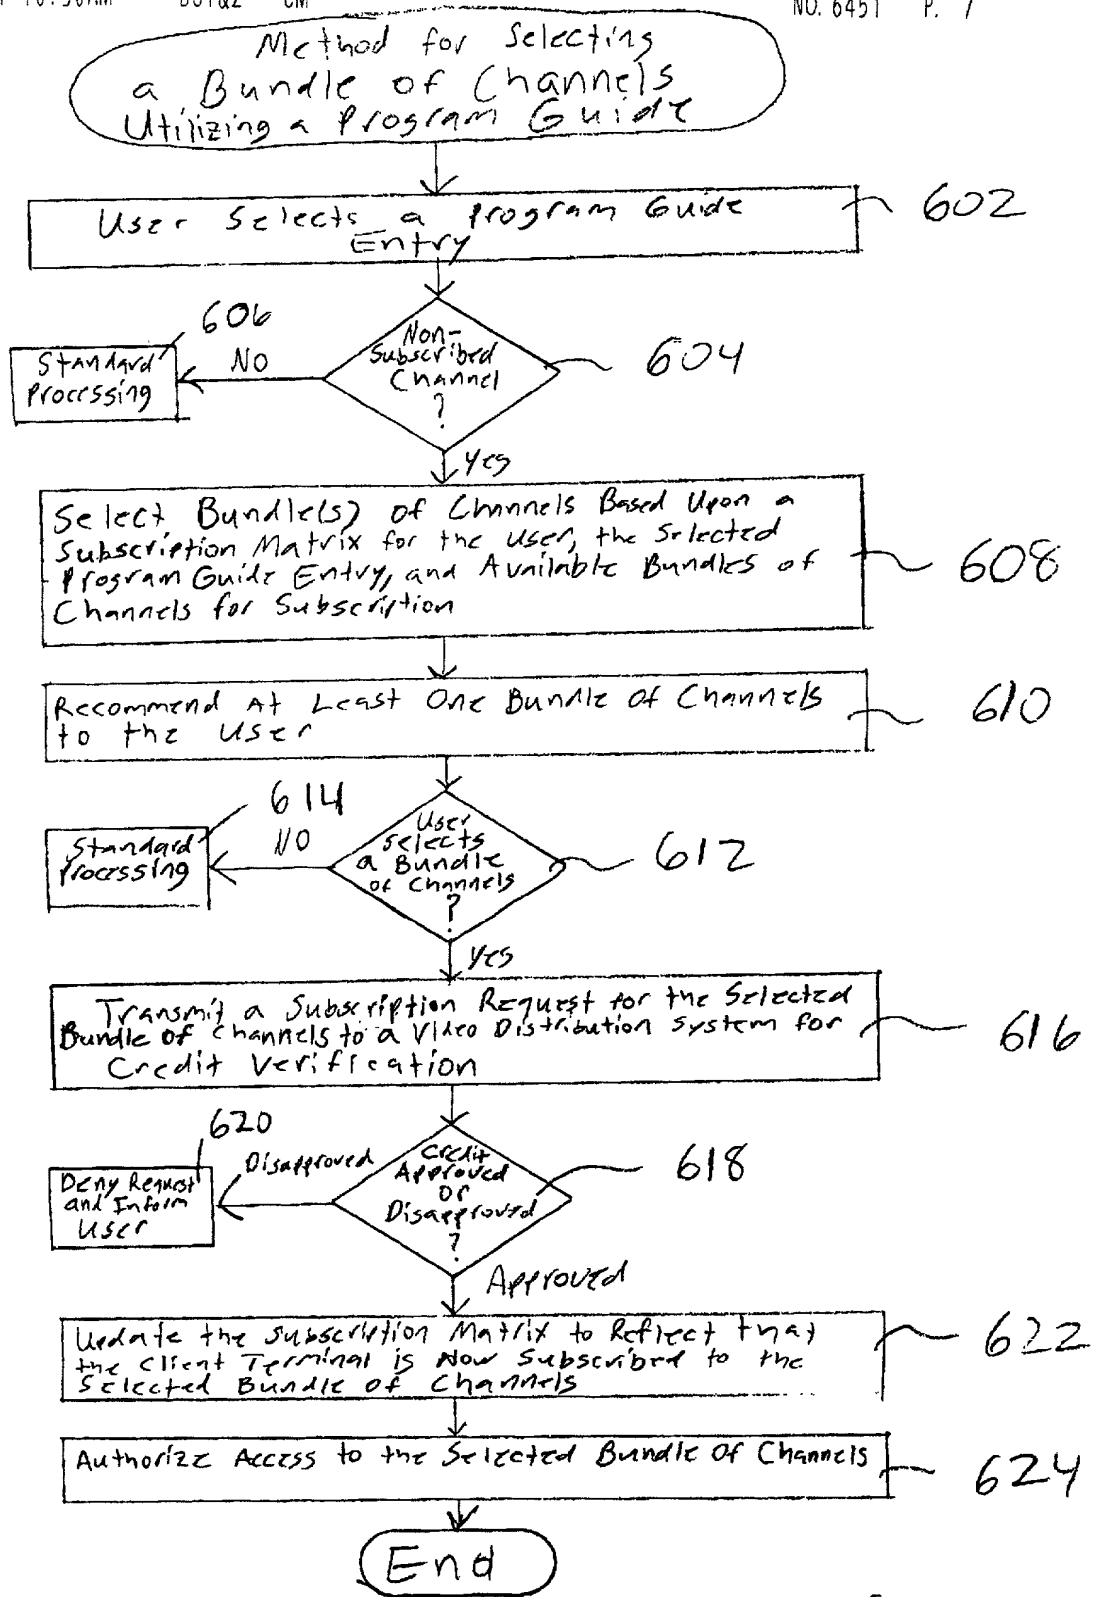 10:50AM BSTQZ CM NO. 6451 P. 7
Method for Selecting
a Bundle of Channels
Utilizing a Program Guide
User Selects a Program Guide
Entry
602
606
Standard
Processing
NO
Non-
Subscribed
Channel
?
604
Yes
Select Bundle(s) of Channels Based Upon a
Subscription Matrix for the User, the Selected
Program Guide Entry, and Available Bundles of
Channels for Subscription
608
Recommend At Least One Bundle of Channels
to the User
610
614
Standard
Processing
NO
User
Selects
a Bundle
of Channels
?
612
Yes
Transmit a Subscription Request for the Selected
Bundle of Channels to a Video Distribution System for
Credit Verification
616
620
Deny Request
and Inform
User
Disapproved
Credit
Approved
or
Disapproved
?
618
Approved
Update the Subscription Matrix to Reflect that
the Client Terminal is Now Subscribed to the
Selected Bundle of Channels
622
Authorize Access to the Selected Bundle Of Channels
624
End